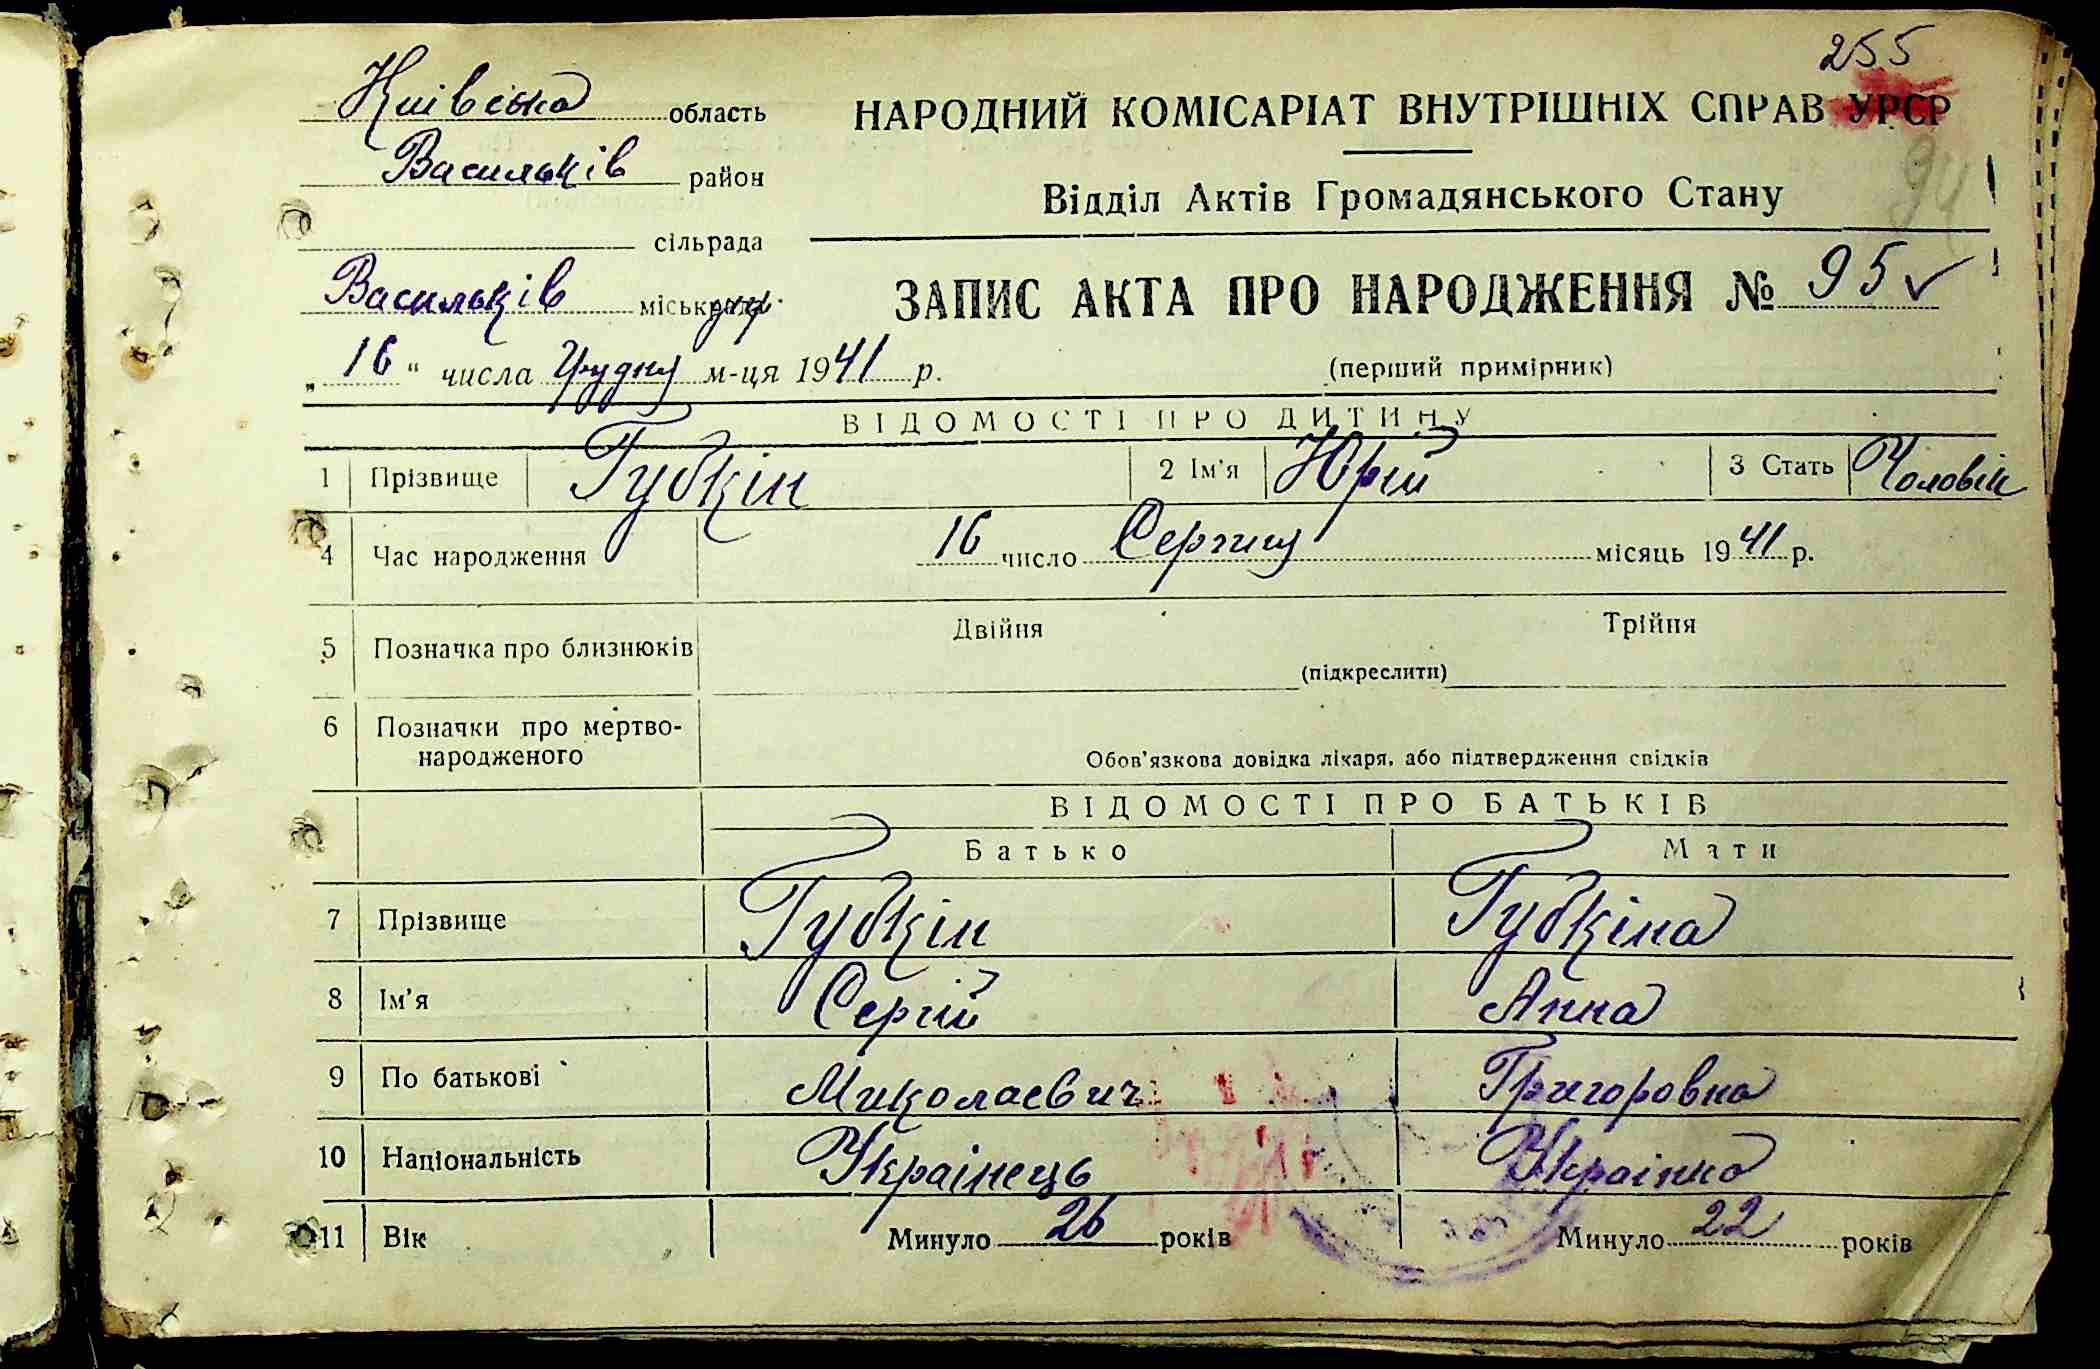 255
Київська область
НАРОДНИЙ КОМІСАРІАТ ВНУТРІШНІХ СПРАВ УРСР
Васильків район
94
Відділ Актів Громадянського Стану
сільрада
Васильків міськ
ЗАПИС АКТА ПРО НАРОДЖЕННЯ № 95
„16“ числа Грудня м-ця 1941 р.
(перший примірник)
ВІДОМОСТІ ПРО ДИТИНУ
1 Прізвище Губкін 2 Ім'я Юрій 3 Стать Чоловік
4 Час народження 16 число Серпня місяць 1941 р.
5 Позначка про близнюків Двійня Трійня
(підкреслити)
6 Позначки про мертво-
народженого
Обов'язкова довідка лікаря, або підтвердження свідків
ВІДОМОСТІ ПРО БАТЬКІВ
Батько Мати
7 Прізвище Губкін Губкіна
8 Ім'я Сергій Анна
9 По батькові Миколаевич Григоровна
10 Національність Украінець Украінка
11 Вік Минуло 26 років Минуло 22 років